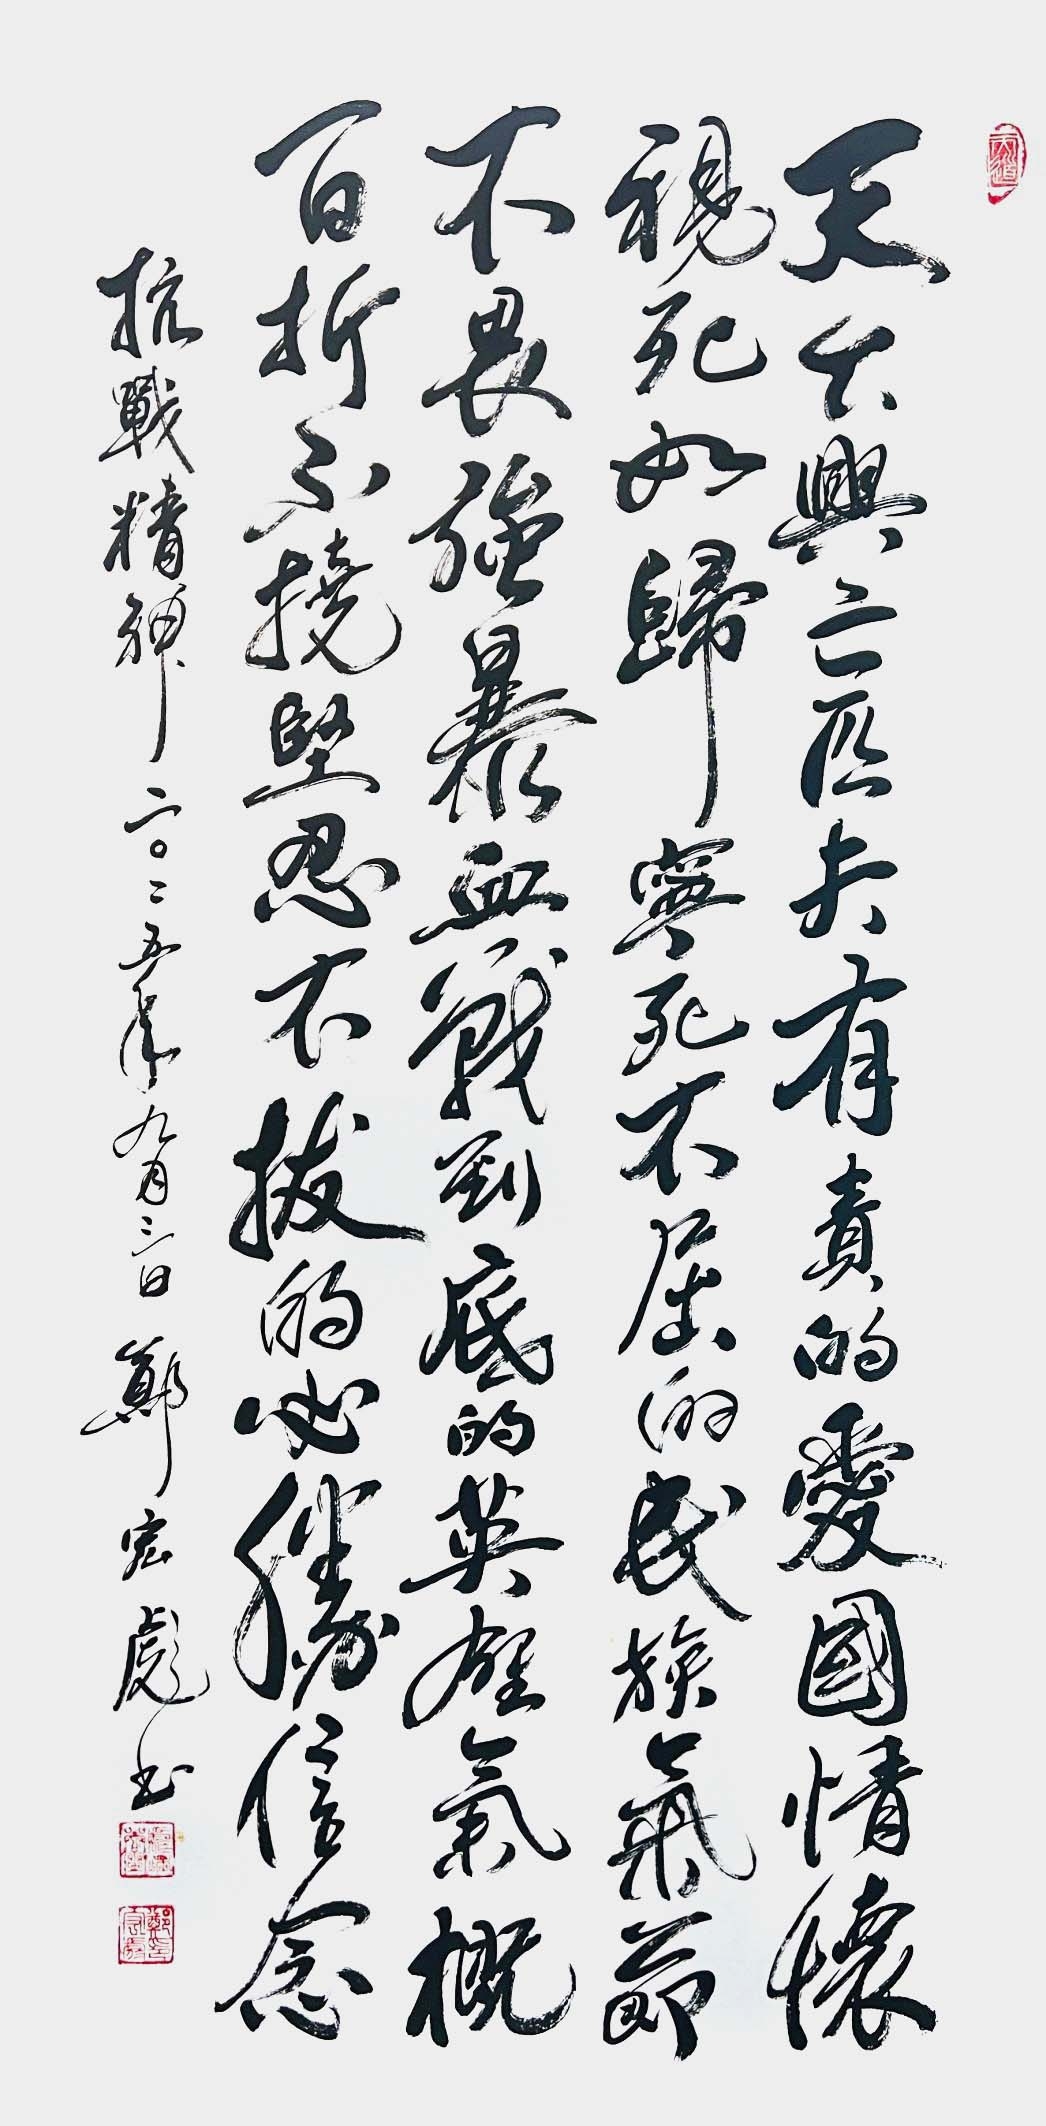 天下興亡匹夫有責的愛國情懷
視死如歸寧死不屈的民族氣節
不畏強暴血戰到底的英雄氣概
百折不撓堅忍不拔的必勝信念
抗戰精神二〇二五年九月三日鄭宏彪书
天道